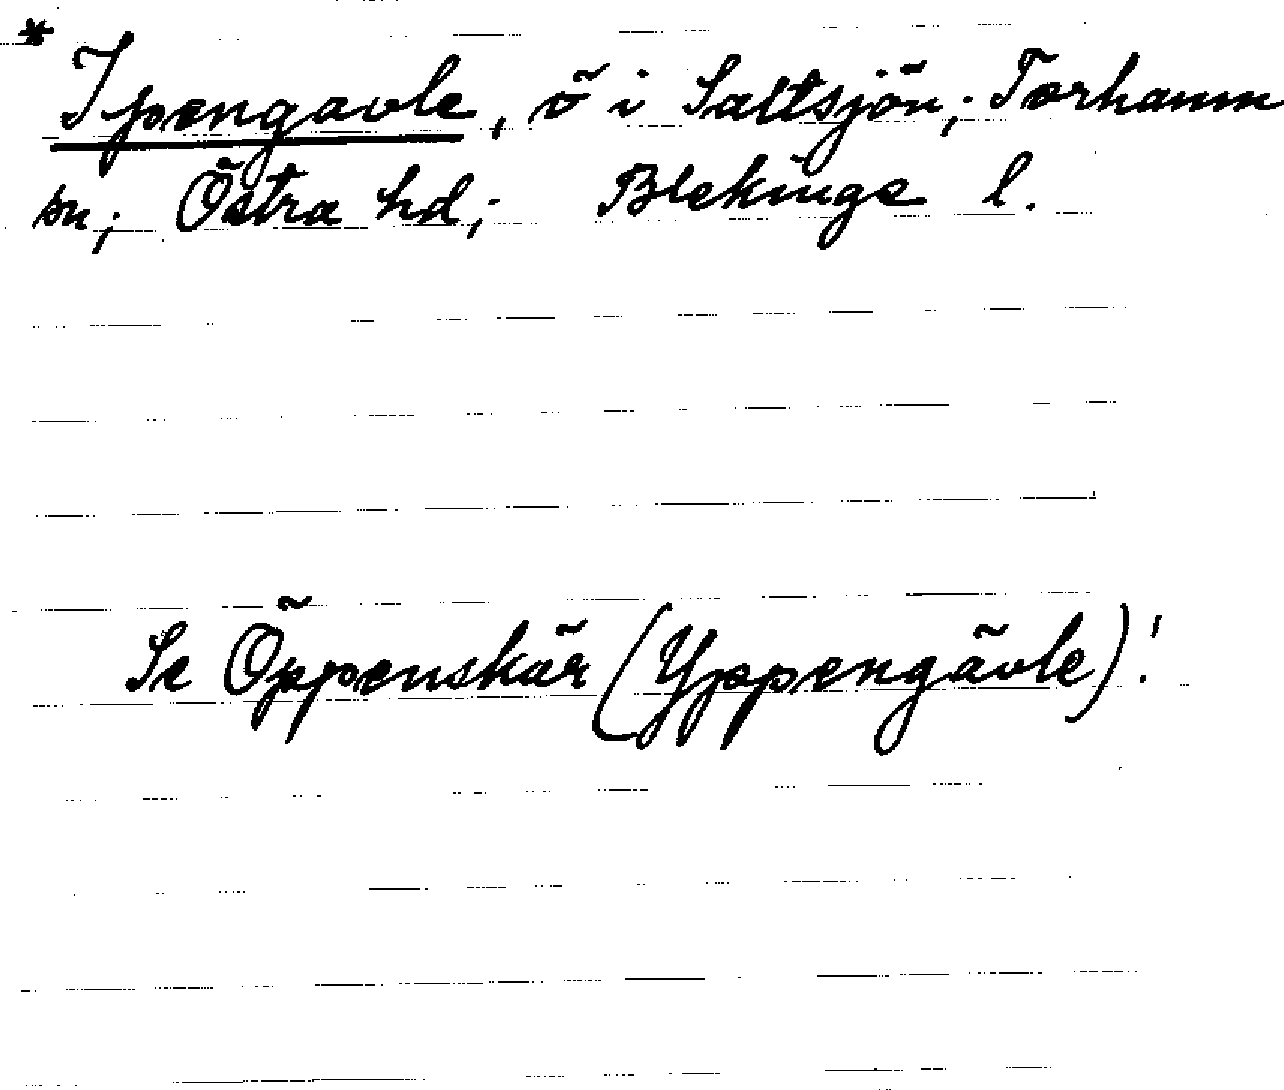 * Ipengavle, ö i Saltsjön; Torhamn
sn; Östra hd; Blekinge l.
Se Öppenskär (Yppengävle)!